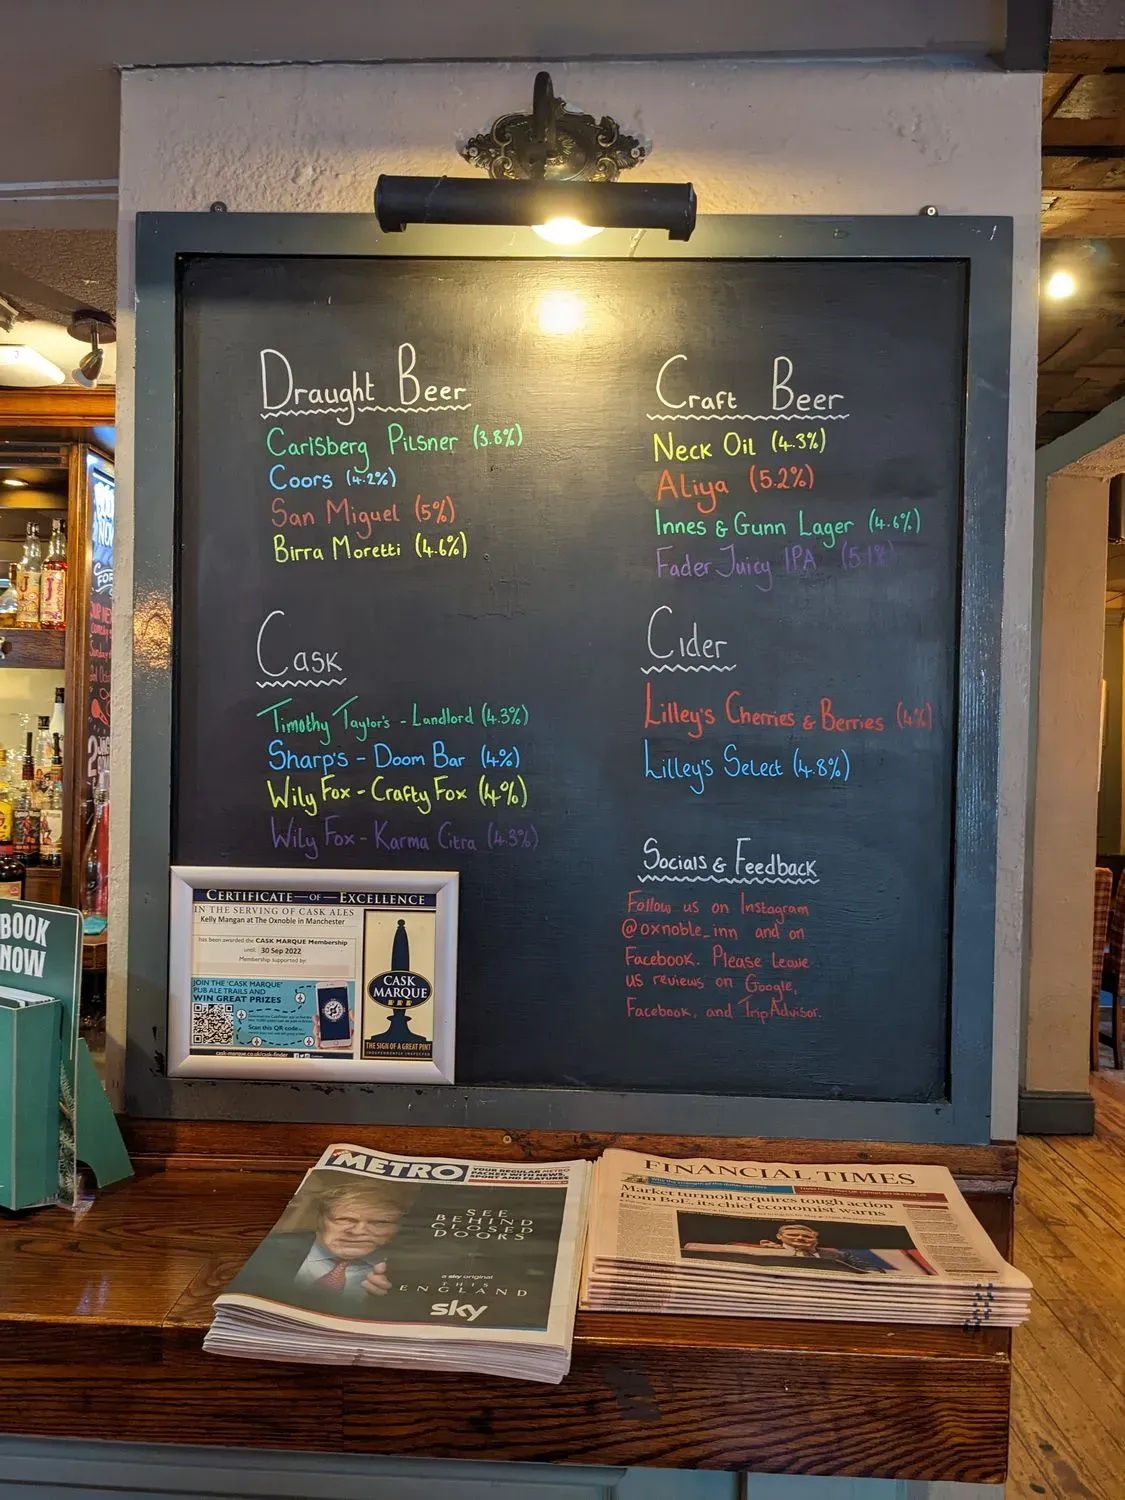 Draught Beer
Carlsberg Pilsner (3.8%)
Coors (4.2%)
San Miguel (5%)
Birra Moretti (4.6%)
Cask
Timothy Taylor's - Landlord (4.3%)
Sharp's - Doom Bar (4%)
Wily Fox - Crafty Fox (4%)
Wily Fox - Karma Citra (4.3%)
Craft Beer
Neck Oil (4.3%)
Aliya (5.2%)
Innes & Gunn Lager (4.6%)
Fader Juicy IPA (5.1%)
Cider
Lilley's Cherries & Berries (4%)
Lilley's Select (4.8%)
Socials & Feedback
Follow us on Instagram
@oxnoble_inn and on
Facebook. Please leave
us reviews on Google,
Facebook, and TripAdvisor.
CERTIFICATE OF EXCELLENCE
IN THE SERVING OF CASK ALES
Kelly Mangan at The Oxnoble in Manchester
has been awarded the CASK MARQUE Membership
until: 30 Sep 2022
Membership supported by:
JOIN THE 'CASK MARQUE'
PUB ALE TRAILS AND
WIN GREAT PRIZES
Scan this QR code
cask-marque.co.uk/cask-finder
CASK
MARQUE
THE SIGN OF A GREAT PINT
INDEPENDENTLY INSPECTED
BOOK
NOW
METRO
YOUR REGULAR METRO
PACKED WITH NEWS,
SPORT AND FEATURES
SEE
BEHIND
CLOSED
DOORS
a sky original
THIS
ENGLAND
sky
FINANCIAL TIMES
Market turmoil requires tough action
from BoE, its chief economist warns